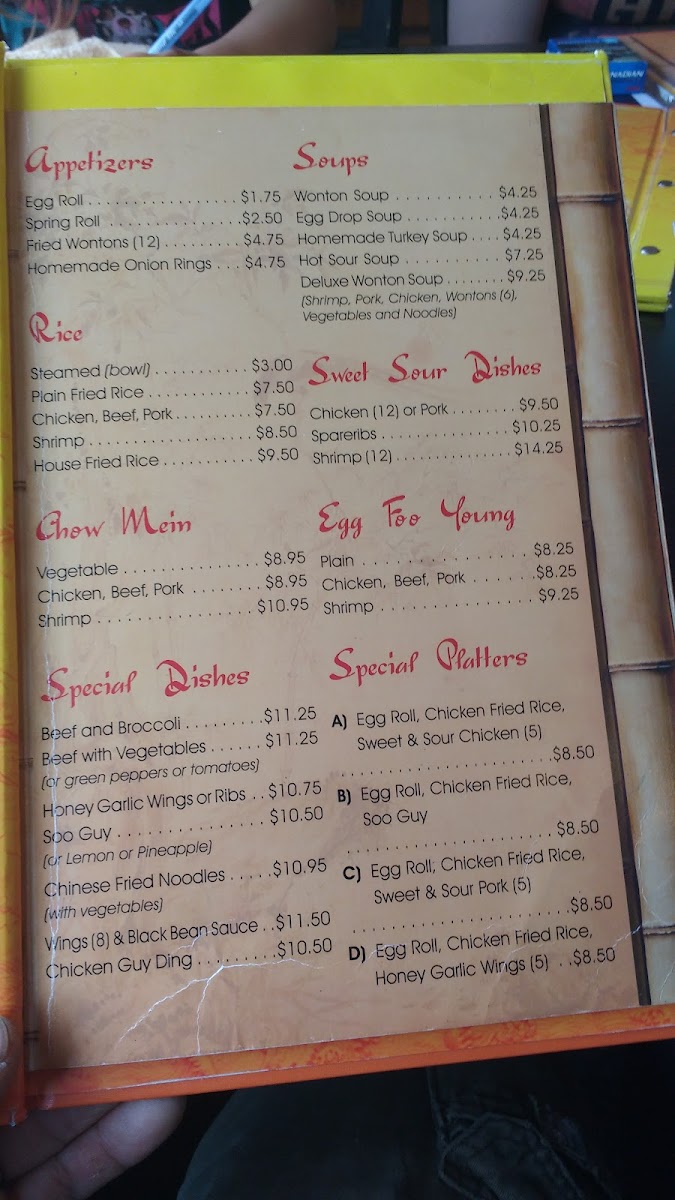 NADIAN
Appetizers
Egg Roll . . . . . . . . . . . . . . . . . $1.75
Spring Roll . . . . . . . . . . . . . . . .$2.50
Fried Wontons (12) . . . . . . . . . $4.75
Homemade Onion Rings . . . $4.75
Rice
Steamed (bowl) . . . . . . . . . . . $3.00
Plain Fried Rice . . . . . . . . . . . . $7.50
Chicken, Beef, Pork . . . . . . . . . $7.50
Shrimp . . . . . . . . . . . . . . . . . . $8.50
House Fried Rice . . . . . . . . . . $9.50
Chow Mein
Vegetable . . . . . . . . . . . . . . . $8.95
Chicken, Beef, Pork . . . . . . . . $8.95
Shrimp . . . . . . . . . . . . . . . . . $10.95
Special Dishes
Beef and Broccoli . . . . . . . . .$11.25
Beef with Vegetables . . . . . . $11.25
(or green peppers or tomatoes)
Honey Garlic Wings or Ribs . . $10.75
Soo Guy . . . . . . . . . . . . . . . $10.50
(or Lemon or Pineapple)
Chinese Fried Noodles . . . . .$10.95
(with vegetables)
Wings (8) & Black Bean Sauce . .$11.50
Chicken Guy Ding . . . . . . . . .$10.50
Soups
Wonton Soup . . . . . . . . . . $4.25
Egg Drop Soup . . . . . . . . . . .$4.25
Homemade Turkey Soup . . . . $4.25
Hot Sour Soup . . . . . . . . . . . $7.25
Deluxe Wonton Soup . . . . . . . $9.25
(Shrimp, Pork, Chicken, Wontons (6),
Vegetables and Noodles)
Sweet Sour Dishes
Chicken (12) or Pork . . . . . . . . $9.50
Spareribs . . . . . . . . . . . . . . . $10.25
Shrimp (12) . . . . . . . . . . . . . . $14.25
Egg Foo Young
Plain . . . . . . . . . . . . . . . . . $8.25
Chicken, Beef, Pork . . . . . . .$8.25
Shrimp . . . . . . . . . . . . . . . . $9.25
Special Platters
A) Egg Roll, Chicken Fried Rice,
Sweet & Sour Chicken (5)
. . . . . . . . . . . . . . . . . . . . . . .$8.50
B) Egg Roll, Chicken Fried Rice,
Soo Guy
. . . . . . . . . . . . . . . . . . . . . . . $8.50
C) Egg Roll, Chicken Fried Rice,
Sweet & Sour Pork (5)
. . . . . . . . . . . . . . . . . . . . . . . .$8.50
D) Egg Roll, Chicken Fried Rice,
Honey Garlic Wings (5) . .$8.50